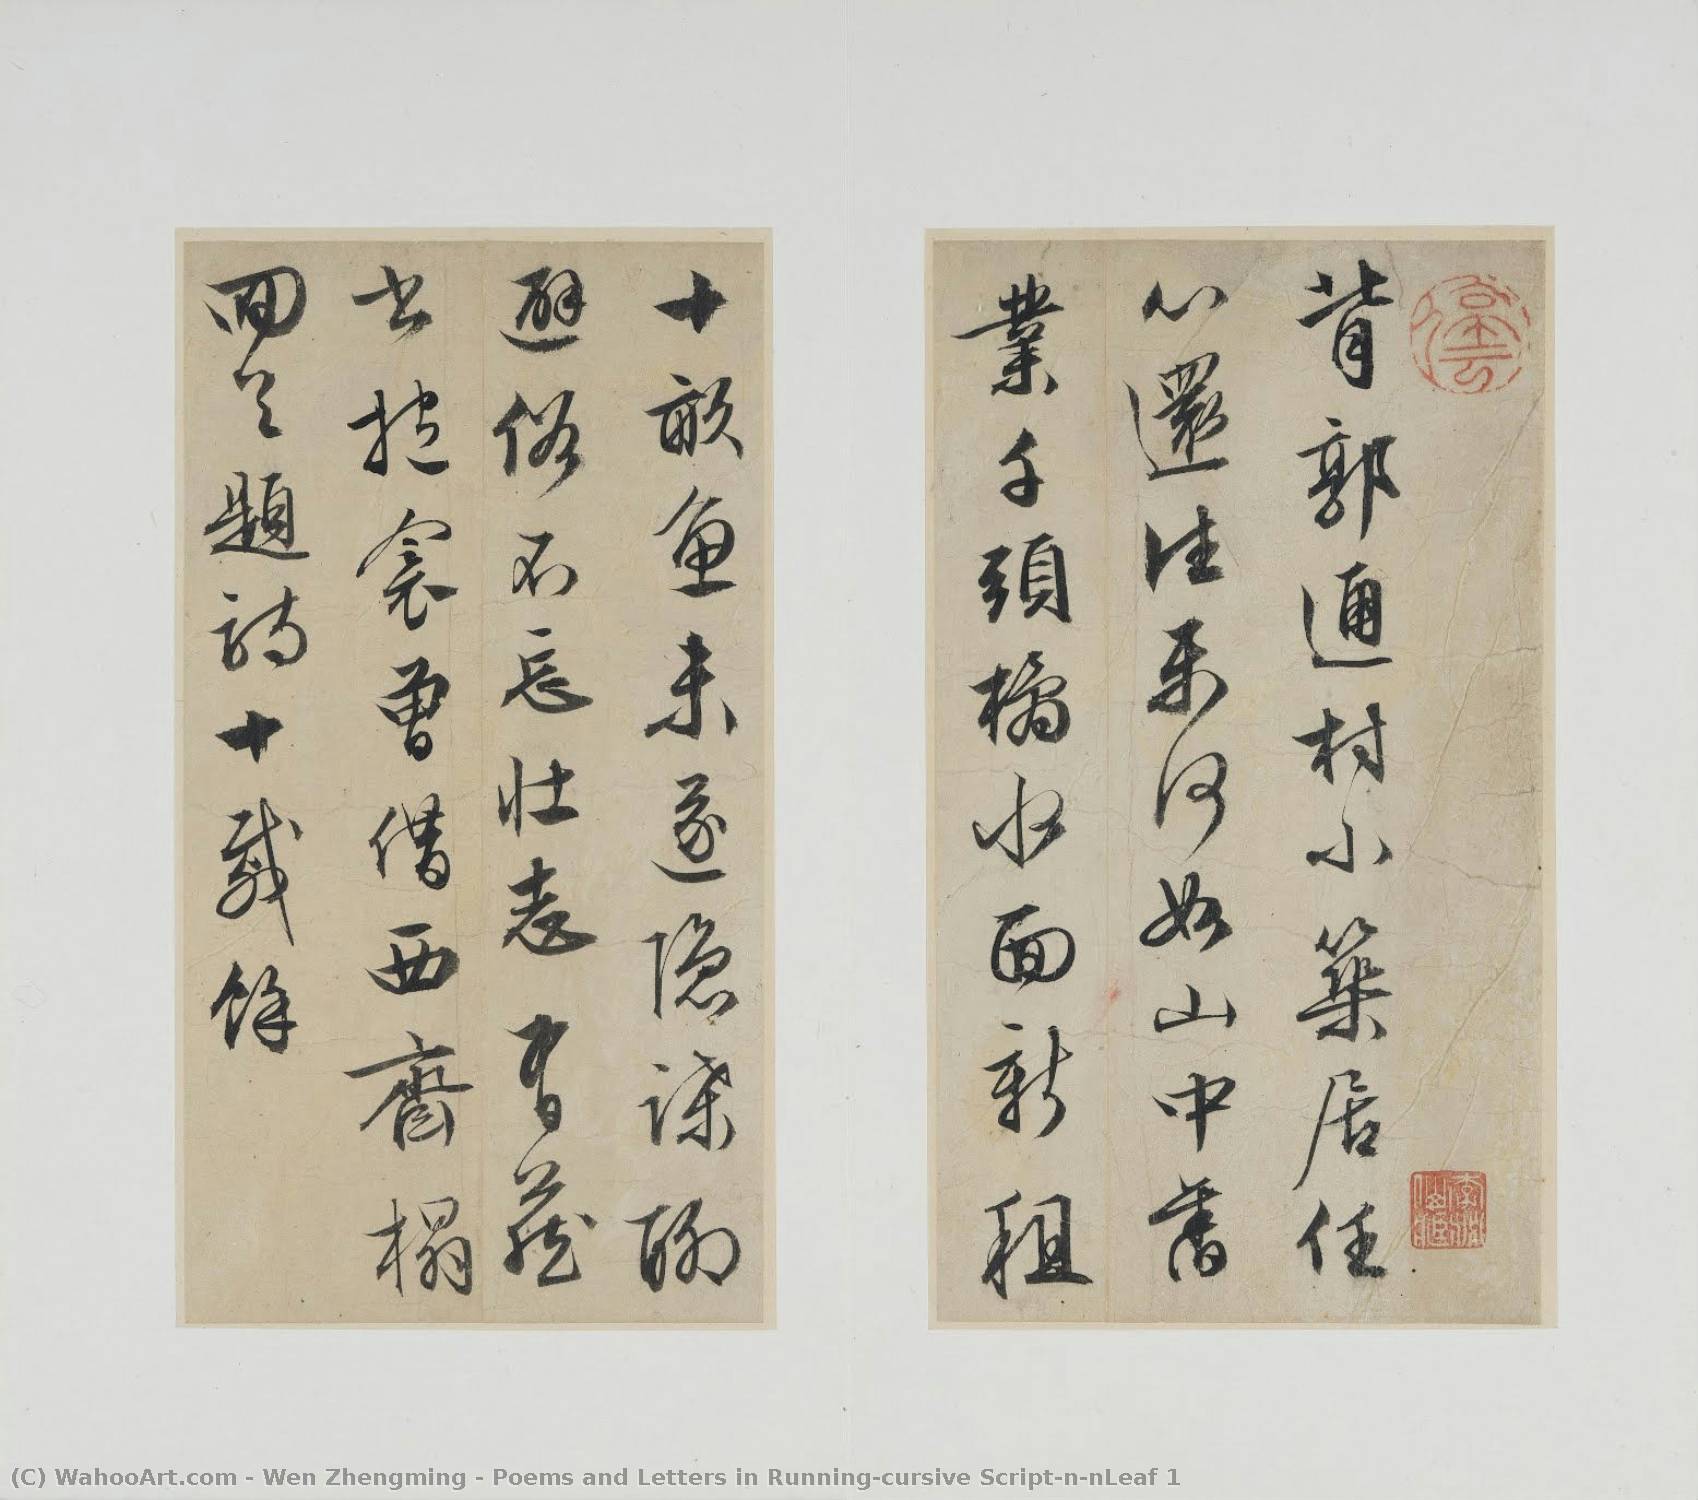 背郭通村小築居任
心還往樂何如山中舊
業千頭橘水面新租
十畝魚未遂隱謀聊
避俗不忘壯志有藏
書抱衾曾借西齋榻
回首題詩十載餘
停雲
(C) WahooArt.com - Wen Zhengming - Poems and Letters in Running-cursive Script-n-nLeaf 1